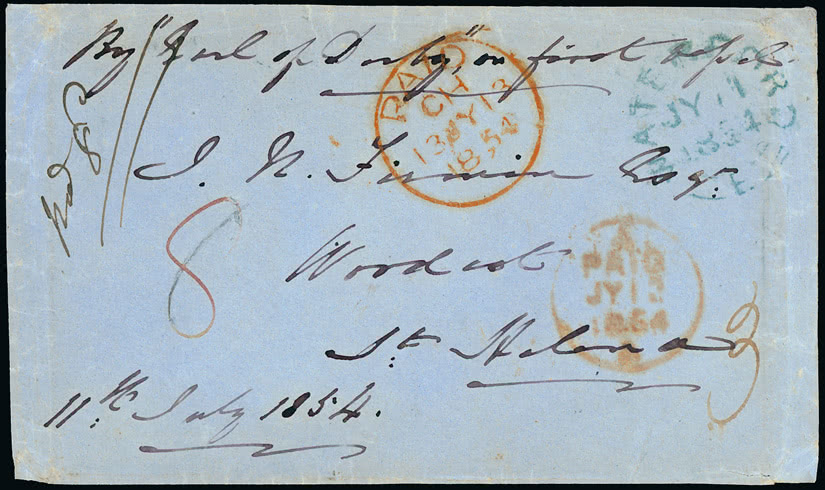 By "Earl of Derby", or first vessel
PAID
CH
13 JY 13
1854
WATERFORD
JY 11
1854
J. N. Firmin Esqr.
8
Woodcot
A
PAID
JY 13
1854
St. Helena
11th July 1854.